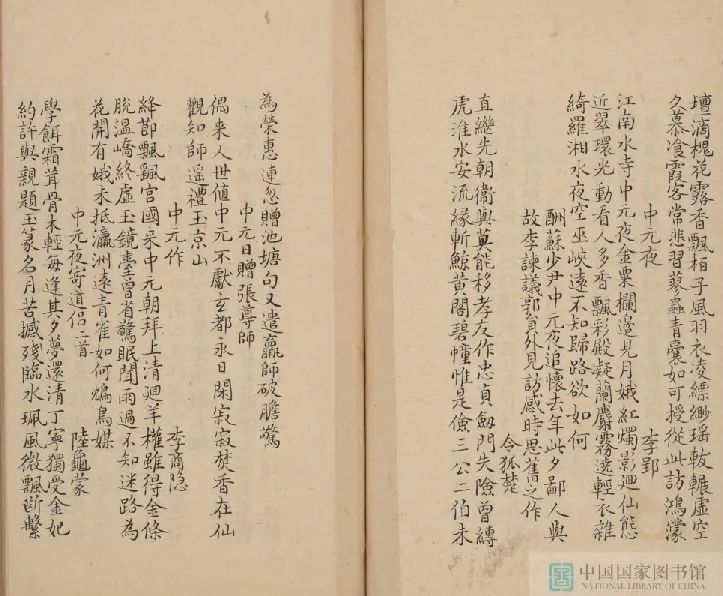 壇滴槐花露香飄栢子風羽衣凌縹緲瑶轂輾虛空
久慕飡霞客常悲習蓼蟲青囊如可授從此訪鴻濛
中元夜 李郢
江南水寺中元夜金粟欄邊見月娥紅燭影廻仙態
近翠環光動看人多香飄彩殿凝蘭麝霧遶輕衣雜
綺羅湘水夜空巫峽遠不知歸路欲如何
酬蘇少尹中元夜追懷去年此夕鄙人與
故李諫議郭員外見訪感時思舊之作
令狐楚
直繼先朝衞與英能移孝友作忠貞劔門失險曾縛
虎淮水安流緣斬鯨黃閣碧幢惟是儉三公二伯未
為榮惠連忽贈池塘句又遣羸師破膽驚
中元日贈張尊師
偶來人世值中元不獻玄都永日閑寂寂焚香在仙
觀知師遥禮玉京山
中元作 李商隐
絳節飄飄宮國來中元朝拜上清廻羊權雖得金條
脫温嶠終虛玉鏡臺曾省驚眠聞雨過不知迷路為
花開有娀未抵瀛洲遠青雀如何鴆鳥媒
中元夜寄道侣二首 陸龜蒙
學餌霜茸骨未輕每逢其夕夢還清丁寧獨受金妃
約許與親題玉篆名月苦撼殘臨水珮風微飄斷繫
中国国家图书馆
NATIONAL LIBRARY OF CHINA